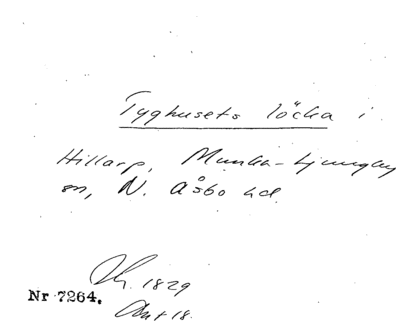 Tyghusets löcka i
Hillarp, Munka-Ljungby
sn, N. Åsbo hd.
1829
Nr 7264.
18.